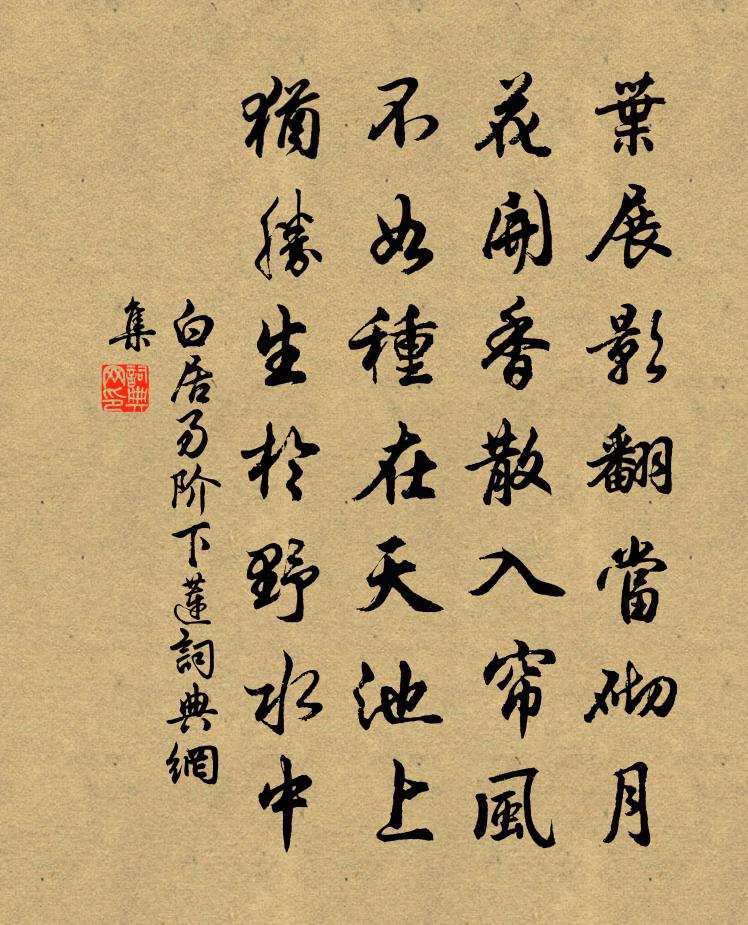 葉展影翻當砌月
花開香散入帘風
不如種在天池上
猶勝生於野水中
白居易阶下蓮詞典網
集
詞典
网印